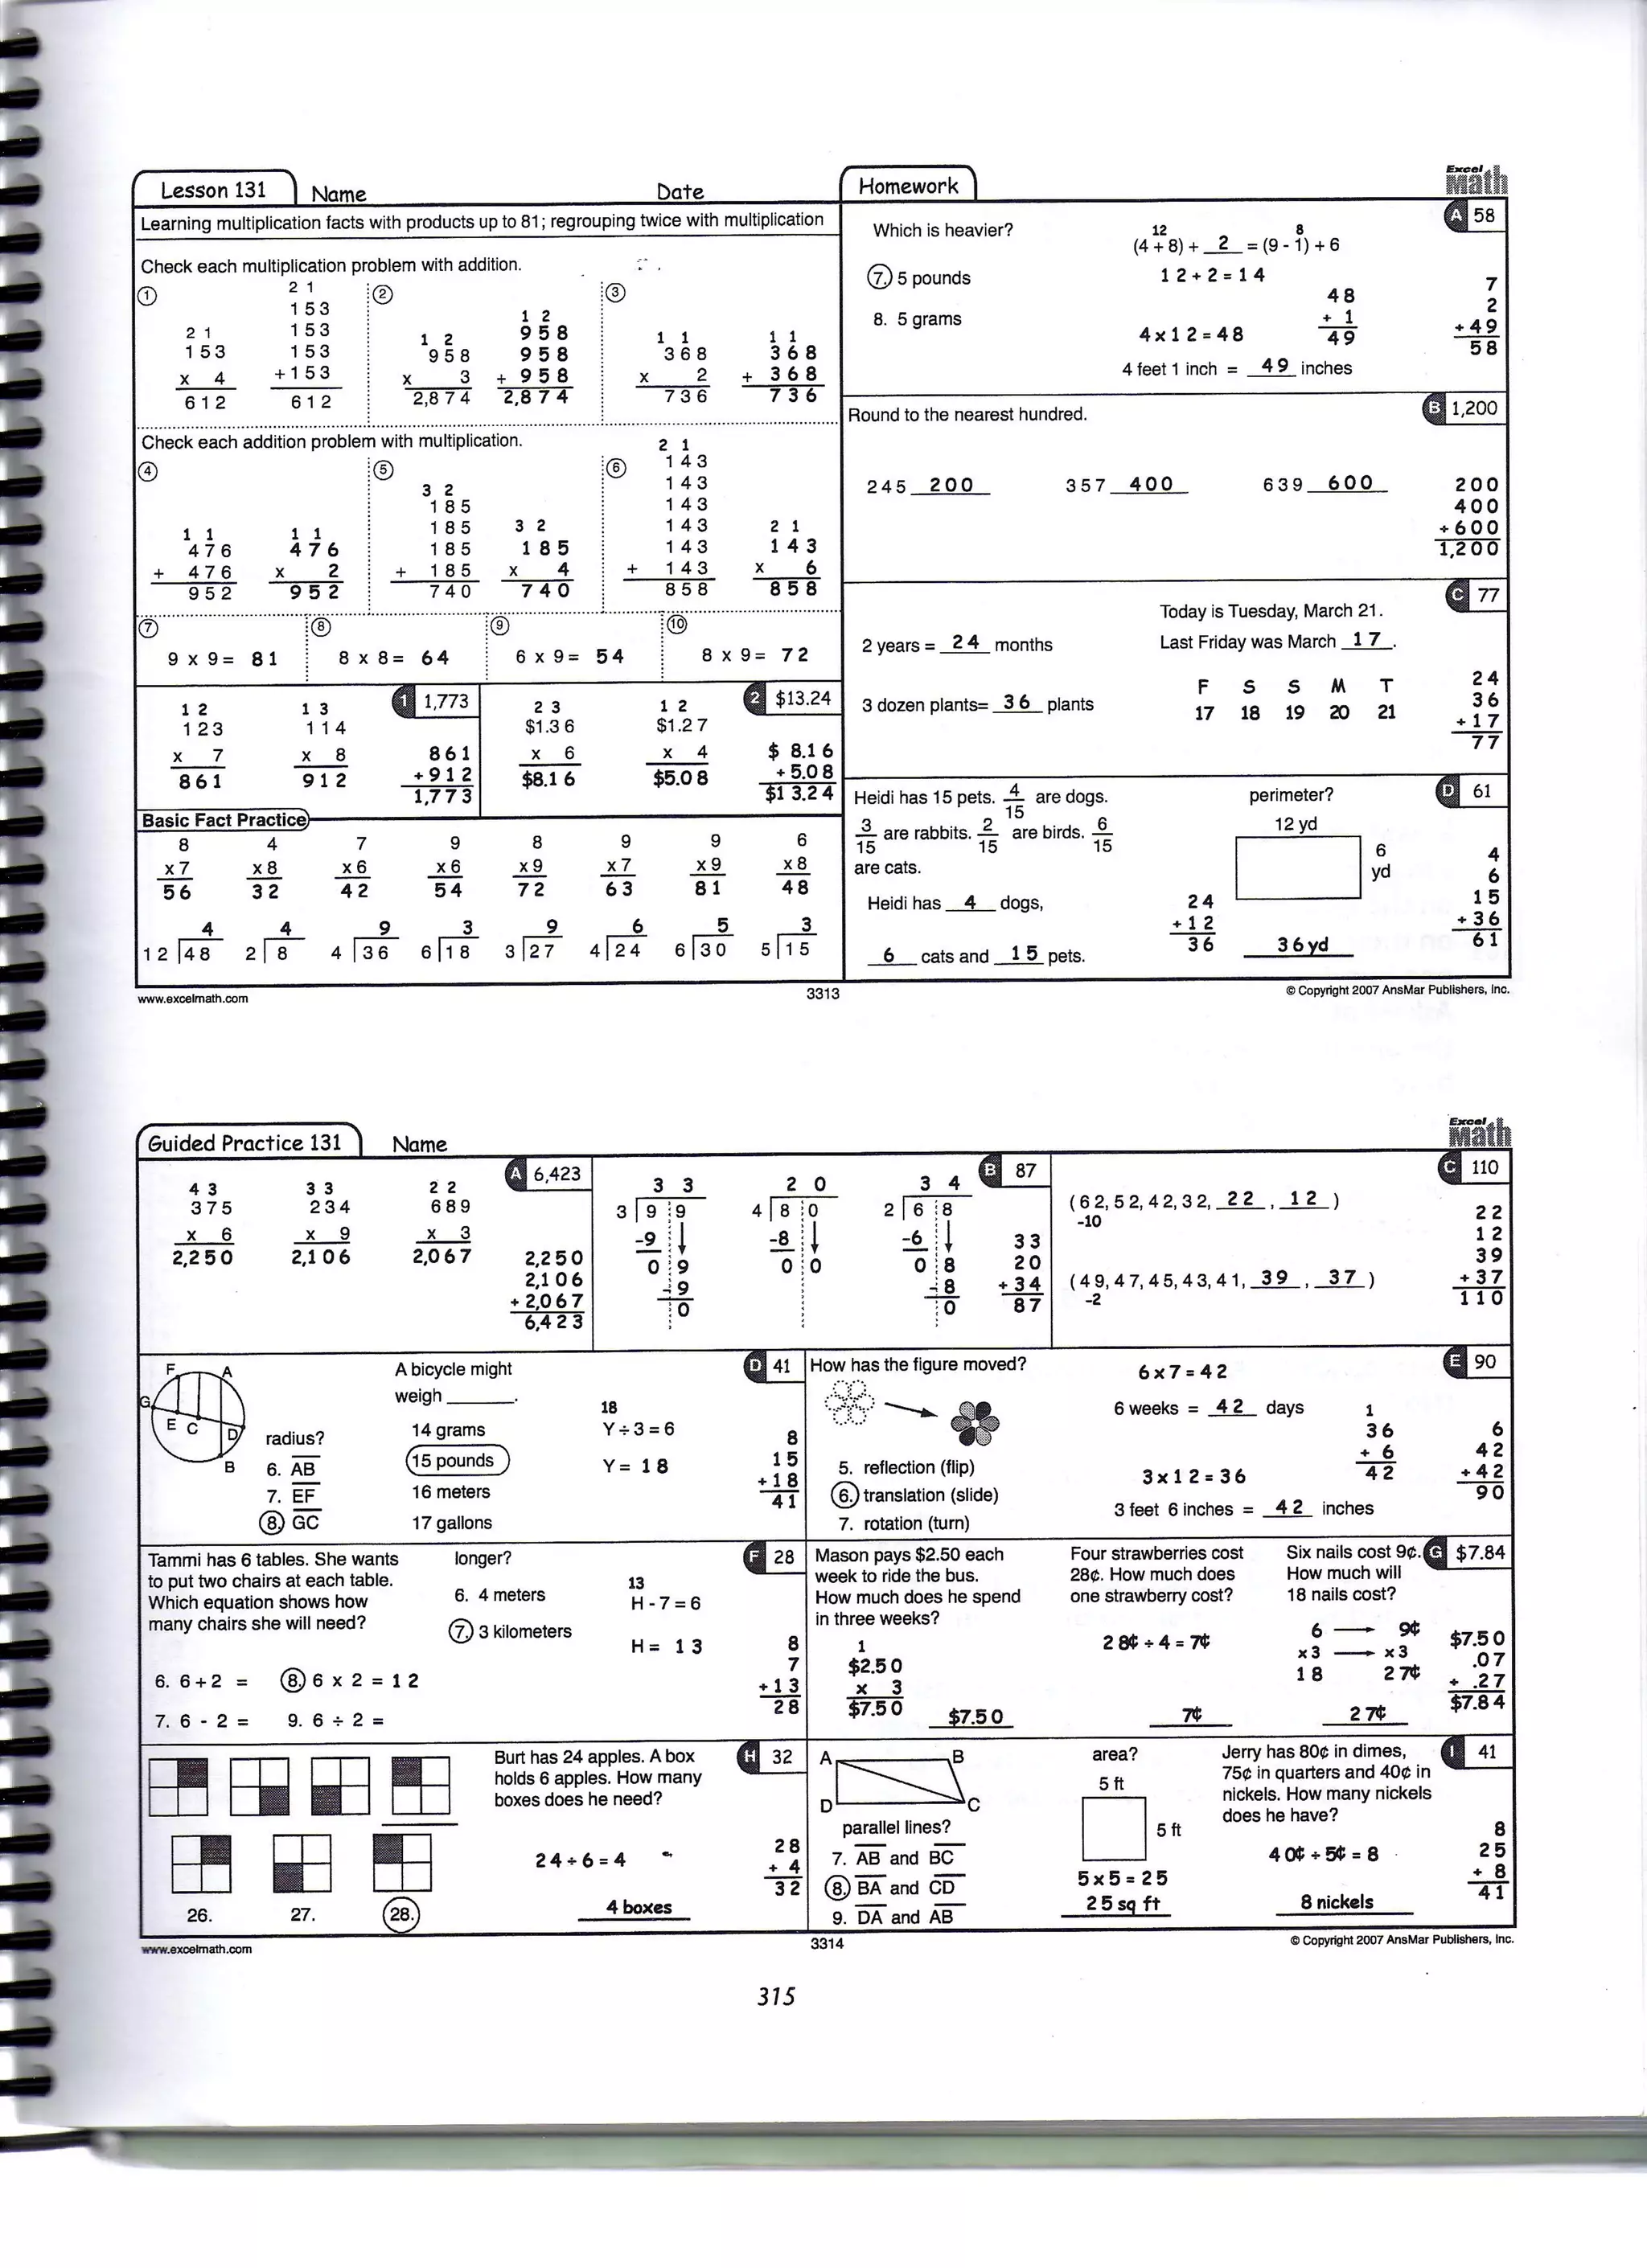 Lesson 131 Name Date Homework Excel Math
Learning multiplication facts with products up to 81; regrouping twice with multiplication
Check each multiplication problem with addition.
①
2 1
153
x 4
612
2 1
153
153
153
+153
612
②
1 2
958
x 3
2,874
1 2
958
958
+ 958
2,874
③
1 1
368
x 2
736
1 1
368
+ 368
736
Check each addition problem with multiplication.
④
1 1
476
+ 476
952
1 1
476
x 2
952
⑤
3 2
185
185
185
+ 185
740
3 2
185
x 4
740
⑥
2 1
143
143
143
143
143
+ 143
858
2 1
143
x 6
858
⑦ 9 x 9 = 81
⑧ 8 x 8 = 64
⑨ 6 x 9 = 54
⑩ 8 x 9 = 72
1 1,773
1 2
123
x 7
861
1 3
114
x 8
912
861
+912
1,773
2 $13.24
2 3
$1.36
x 6
$8.16
1 2
$1.27
x 4
$5.08
$ 8.16
+ 5.08
$13.24
Basic Fact Practice
8 4 7 9 8 9 9 6
x7 x8 x6 x6 x9 x7 x9 x8
56 32 42 54 72 63 81 48
4 4 9 3 9 6 5 3
12 48 2 8 4 36 6 18 3 27 4 24 6 30 5 15
A 58
Which is heavier?
⑦ 5 pounds
8. 5 grams
12 8
(4 + 8) + 2 = (9 - 1) + 6
12 + 2 = 14
4 x 12 = 48
48
+ 1
49
4 feet 1 inch = 49 inches
7
2
+49
58
B 1,200
Round to the nearest hundred.
245 200 357 400 639 600
200
400
+600
1,200
C 77
2 years = 24 months
3 dozen plants= 36 plants
Today is Tuesday, March 21.
Last Friday was March 17.
F S S M T
17 18 19 20 21
24
36
+17
77
D 61
Heidi has 15 pets. 4/15 are dogs.
3/15 are rabbits. 2/15 are birds. 6/15
are cats.
Heidi has 4 dogs,
6 cats and 15 pets.
perimeter?
12 yd
6
yd
24
+12
36
36yd
4
6
15
+36
61
www.excelmath.com 3313 © Copyright 2007 AnsMar Publishers, Inc.
Guided Practice 131 Name Excel Math
A 6,423
4 3
375
x 6
2,250
3 3
234
x 9
2,106
2 2
689
x 3
2,067
2,250
2,106
+ 2,067
6,423
B 87
3 3
3 9 9
-9
0 9
-9
0
2 0
4 8 0
-8
0 0
3 4
2 6 8
-6
0 8
-8
0
33
20
+34
87
C 110
(62, 52, 42, 32, 22, 12)
-10
(49, 47, 45, 43, 41, 39, 37)
-2
22
12
39
+37
110
D 41
F A
G
E C D
B
radius?
6. AB
7. EF
⑧ GC
A bicycle might
weigh ______.
14 grams
15 pounds
16 meters
17 gallons
18
Y ÷ 3 = 6
Y = 18
8
15
+18
41
E 90
How has the figure moved?
5. reflection (flip)
⑥ translation (slide)
7. rotation (turn)
6 x 7 = 42
6 weeks = 42 days
3 x 12 = 36
1
36
+ 6
42
3 feet 6 inches = 42 inches
6
42
+42
90
F 28
Tammi has 6 tables. She wants
to put two chairs at each table.
Which equation shows how
many chairs she will need?
6. 6 + 2 = ⑧ 6 x 2 = 12
7. 6 - 2 = 9. 6 ÷ 2 =
longer?
6. 4 meters
⑦ 3 kilometers
13
H - 7 = 6
H = 13
8
7
+13
28
G $7.84
Mason pays $2.50 each
week to ride the bus.
How much does he spend
in three weeks?
1
$2.50
x 3
$7.50
$7.50
Four strawberries cost
28¢. How much does
one strawberry cost?
28¢ ÷ 4 = 7¢
7¢
Six nails cost 9¢.
How much will
18 nails cost?
6 → 9¢
x3 → x3
18 27¢
27¢
$7.50
.07
+ .27
$7.84
H 32
26. 27. 28.
Burt has 24 apples. A box
holds 6 apples. How many
boxes does he need?
24 ÷ 6 = 4
4 boxes
28
+ 4
32
I 41
A B
D C
parallel lines?
7. AB and BC
⑧ BA and CD
9. DA and AB
area?
5 ft
5 ft
5 x 5 = 25
25 sq ft
Jerry has 80¢ in dimes,
75¢ in quarters and 40¢ in
nickels. How many nickels
does he have?
40¢ ÷ 5¢ = 8
8 nickels
8
25
+ 8
41
www.excelmath.com 3314 © Copyright 2007 AnsMar Publishers, Inc.
315